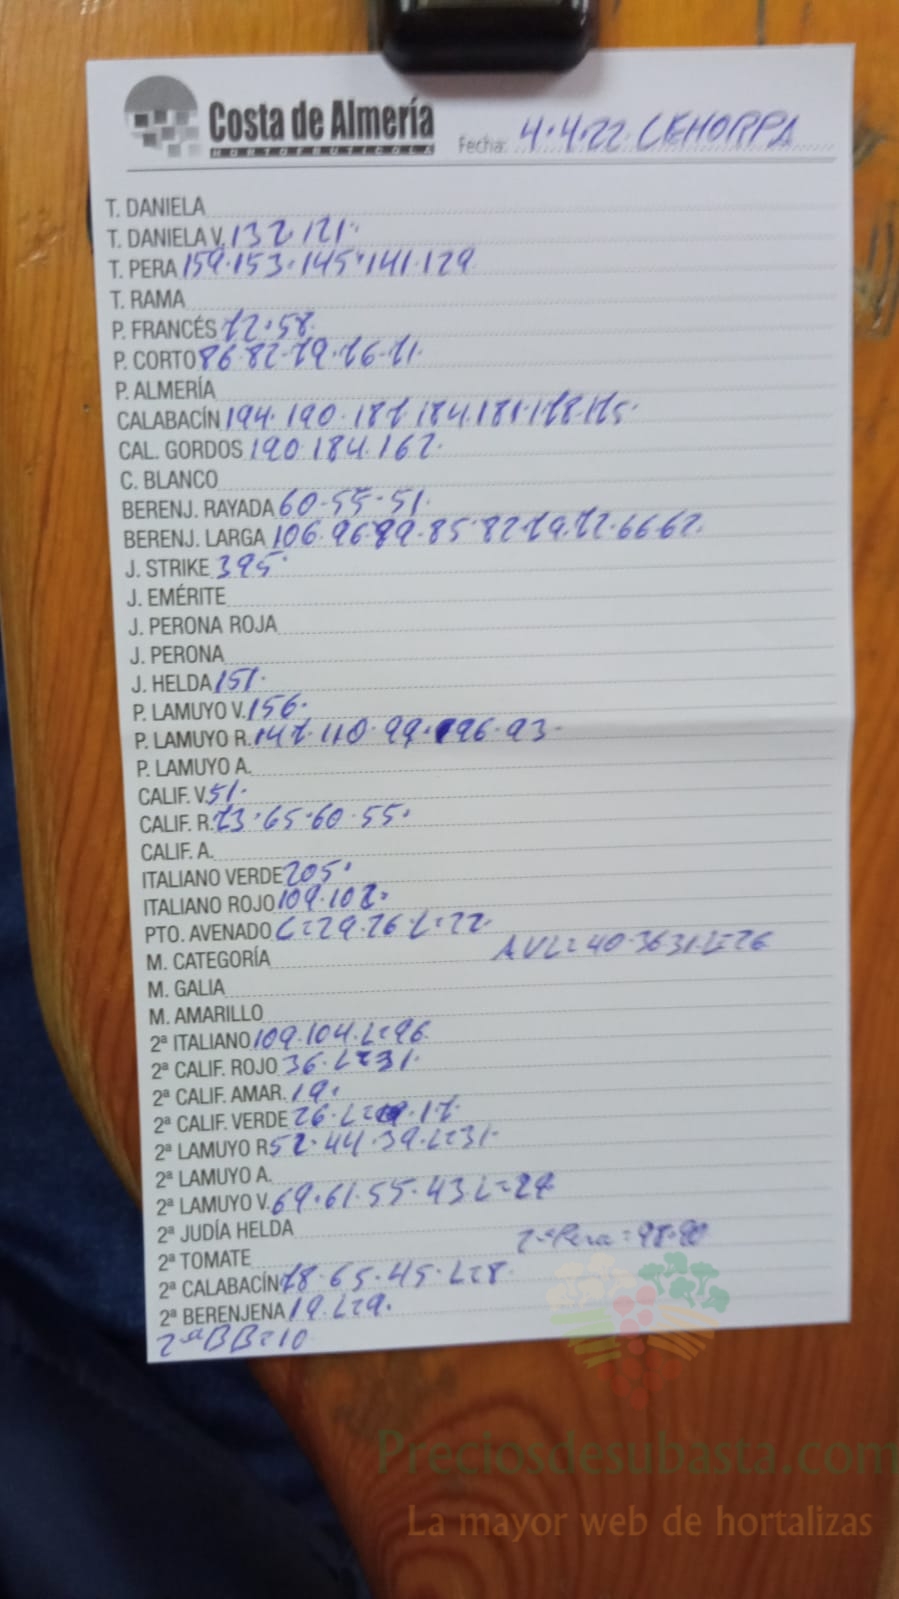 Costa de Almería
HORTOFRUTICOLA
Fecha: 4.4.22. CEHORPA
T. DANIELA
T. DANIELA V. 132.121.
T. PERA 159.153.145.141.129
T. RAMA
P. FRANCÉS 72.58.
P. CORTO 86.82.79.76.71.
P. ALMERÍA
CALABACÍN 194.190.187.184.181.178.175.
CAL. GORDOS 190.184.162.
C. BLANCO
BERENJ. RAYADA 60.55.51.
BERENJ. LARGA 106.96.89.85.82.79.72.66.62.
J. STRIKE 395.
J. EMÉRITE
J. PERONA ROJA
J. PERONA
J. HELDA 151.
P. LAMUYO V. 156.
P. LAMUYO R. 147.110.99.96.93.
P. LAMUYO A.
CALIF. V. 51.
CALIF. R. 73.65.60.55.
CALIF. A.
ITALIANO VERDE 205.
ITALIANO ROJO 109.102.
PTO. AVENADO C=29.26.L=22.
M. CATEGORÍA AVL=40.36.31.L=26
M. GALIA
M. AMARILLO
2ª ITALIANO 109.104.L=96.
2ª CALIF. ROJO 36.L=31.
2ª CALIF. AMAR. 19.
2ª CALIF. VERDE 26.L= .17.
2ª LAMUYO R 52.44.39.L=31.
2ª LAMUYO A.
2ª LAMUYO V. 69.61.55.43 L=24
2ª JUDÍA HELDA
2ª TOMATE 2ªPera=98.90
2ª CALABACÍN 78.65.45.L=8.
2ª BERENJENA 19.L=9.
2ªBB=10
Preciosdesubasta.com
La mayor web de hortalizas